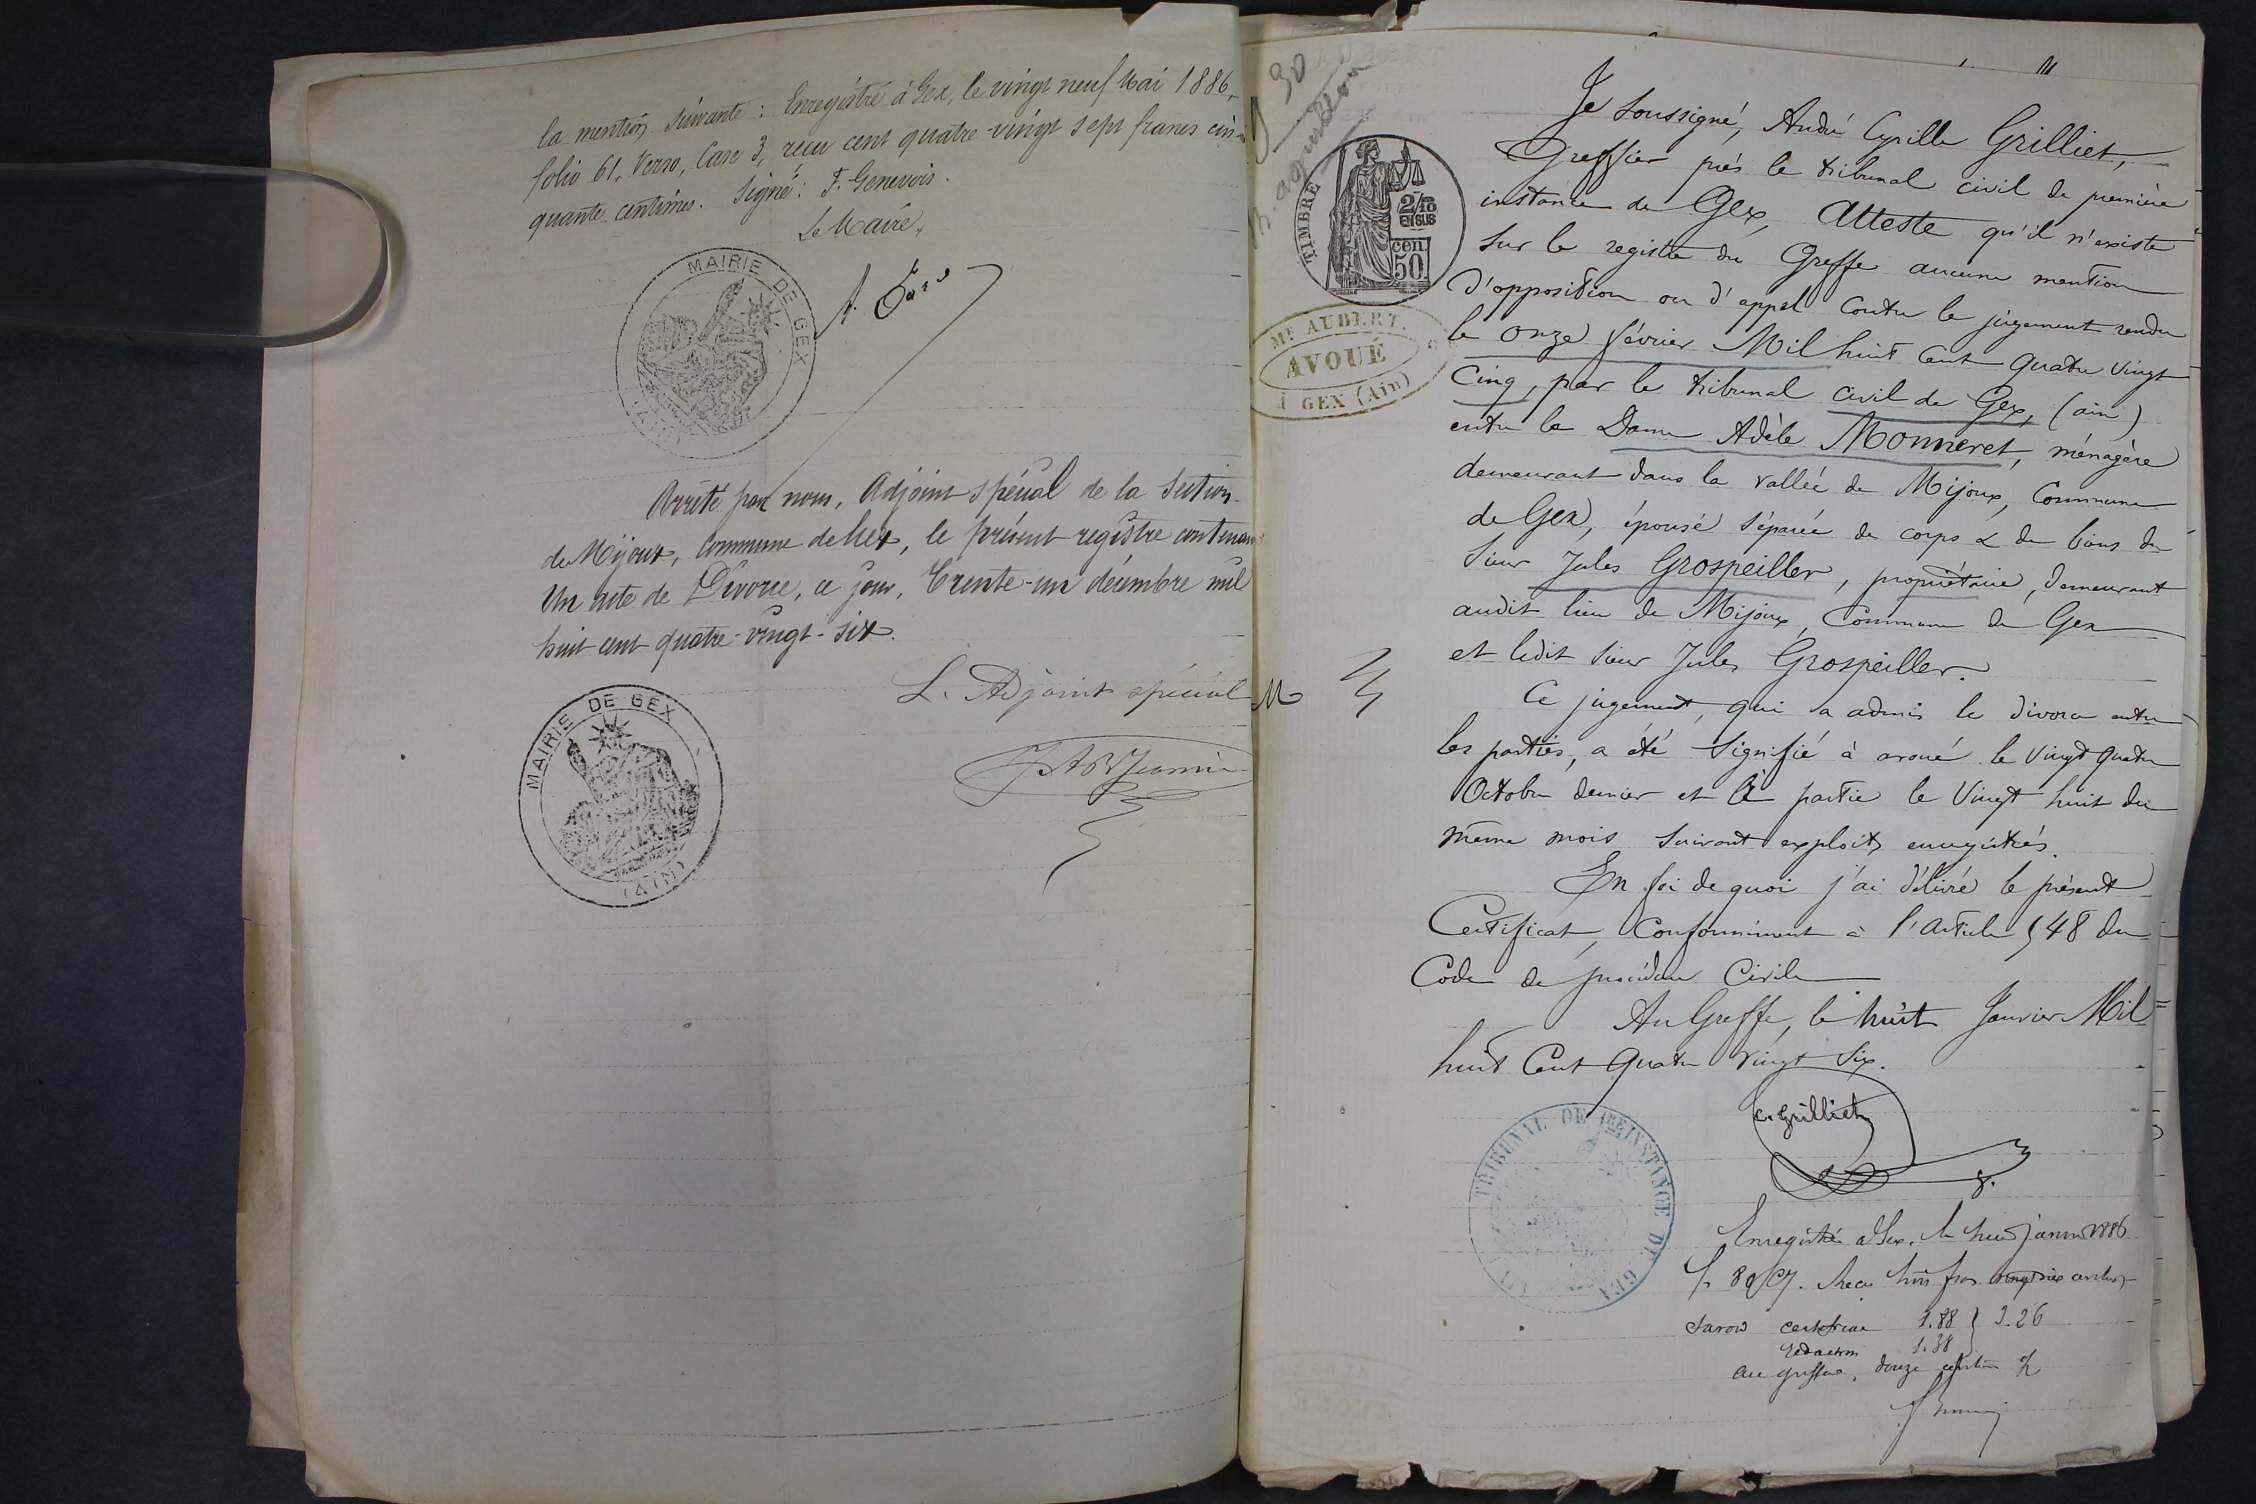 la mention suivante : Enregistré à Gex, le vingt neuf Mai 1886,
folio 61, Verso, Case 3, reçu cent quatre-vingt sept francs cin-
quante centimes. Signé : F. Genevois.
Le Maire,
MAIRIE DE GEX
(AIN)
Arrêté par nous, Adjoint spécial de la Section
de Mijoux, commune de Gex, le présent registre contenant
Un acte de Divorce, ce jour, Trente-un décembre mil
huit cent quatre-vingt-six.
L'Adjoint spécial
MAIRIE DE GEX
(AIN)
30
TIMBRE
2/10
EN SUS
50 cen
ME AUBERT.
AVOUÉ
À GEX (Ain)
Je soussigné, André Cyrille Grilliet,
Greffier près le tribunal civil de première
instance de Gex, Atteste qu'il n'existe
sur le registre du Greffe aucune mention
d'opposition ou d'appel contre le jugement rendu
le onze février Mil huit cent quatre vingt
Cinq, par le tribunal civil de Gex, (ain)
entre la Dame Adèle Monneret, ménagère
demeurant dans la vallée de Mijoux, Commune
de Gex, épouse séparée de corps & de biens du
Sieur Jules Grospeiller, propriétaire, demeurant
audit lieu de Mijoux, Commune de Gex
et ledit sieur Jules Grospeiller.
Ce jugement, qui a admis le divorce entre
les parties, a été signifié à avoué le Vingt quatre
Octobre dernier et à partie le Vingt huit du
même mois suivant exploits enregistrés.
En foi de quoi j'ai délivré le présent
Certificat, Conformément à l'article 548 du
Code de procédure Civile
Au Greffe, le huit Janvier Mil
huit Cent Quatre Vingt Six.
C. Grilliet
TRIBUNAL DE 1RE INSTANCE DE GEX
(AIN)
Enregistré à Gex, le huit janvier 1886
f. 80 C 7. Reçu trois frs vingt six centimes
Savoir certificat 1.88 } 3.26
rédaction 1.38
au greffier, douze centimes